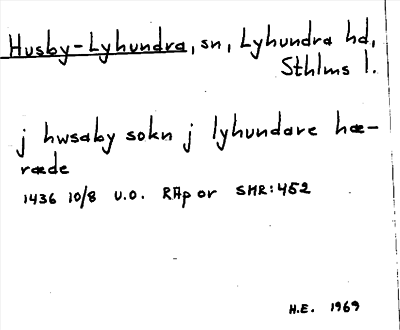 Husby-Lyhundra, sn, Lyhundra hd,
Sthlms l.
j hwsaby sokn j lyhundare hæ-
ræde
1436 10/8 U.O. RAp or SMR:452
H.E. 1969